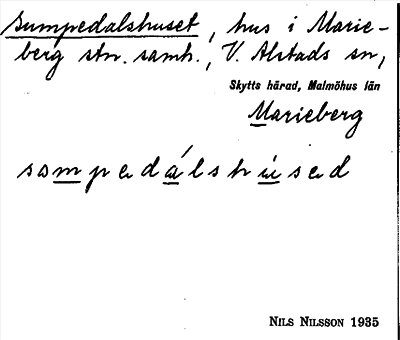 Sumpedalshuset, hus i Marie-
berg stn. samh., V. Alstads sn,
Skytts härad, Malmöhus län
Marieberg
sompedálshúsed
NILS NILSSON 1935